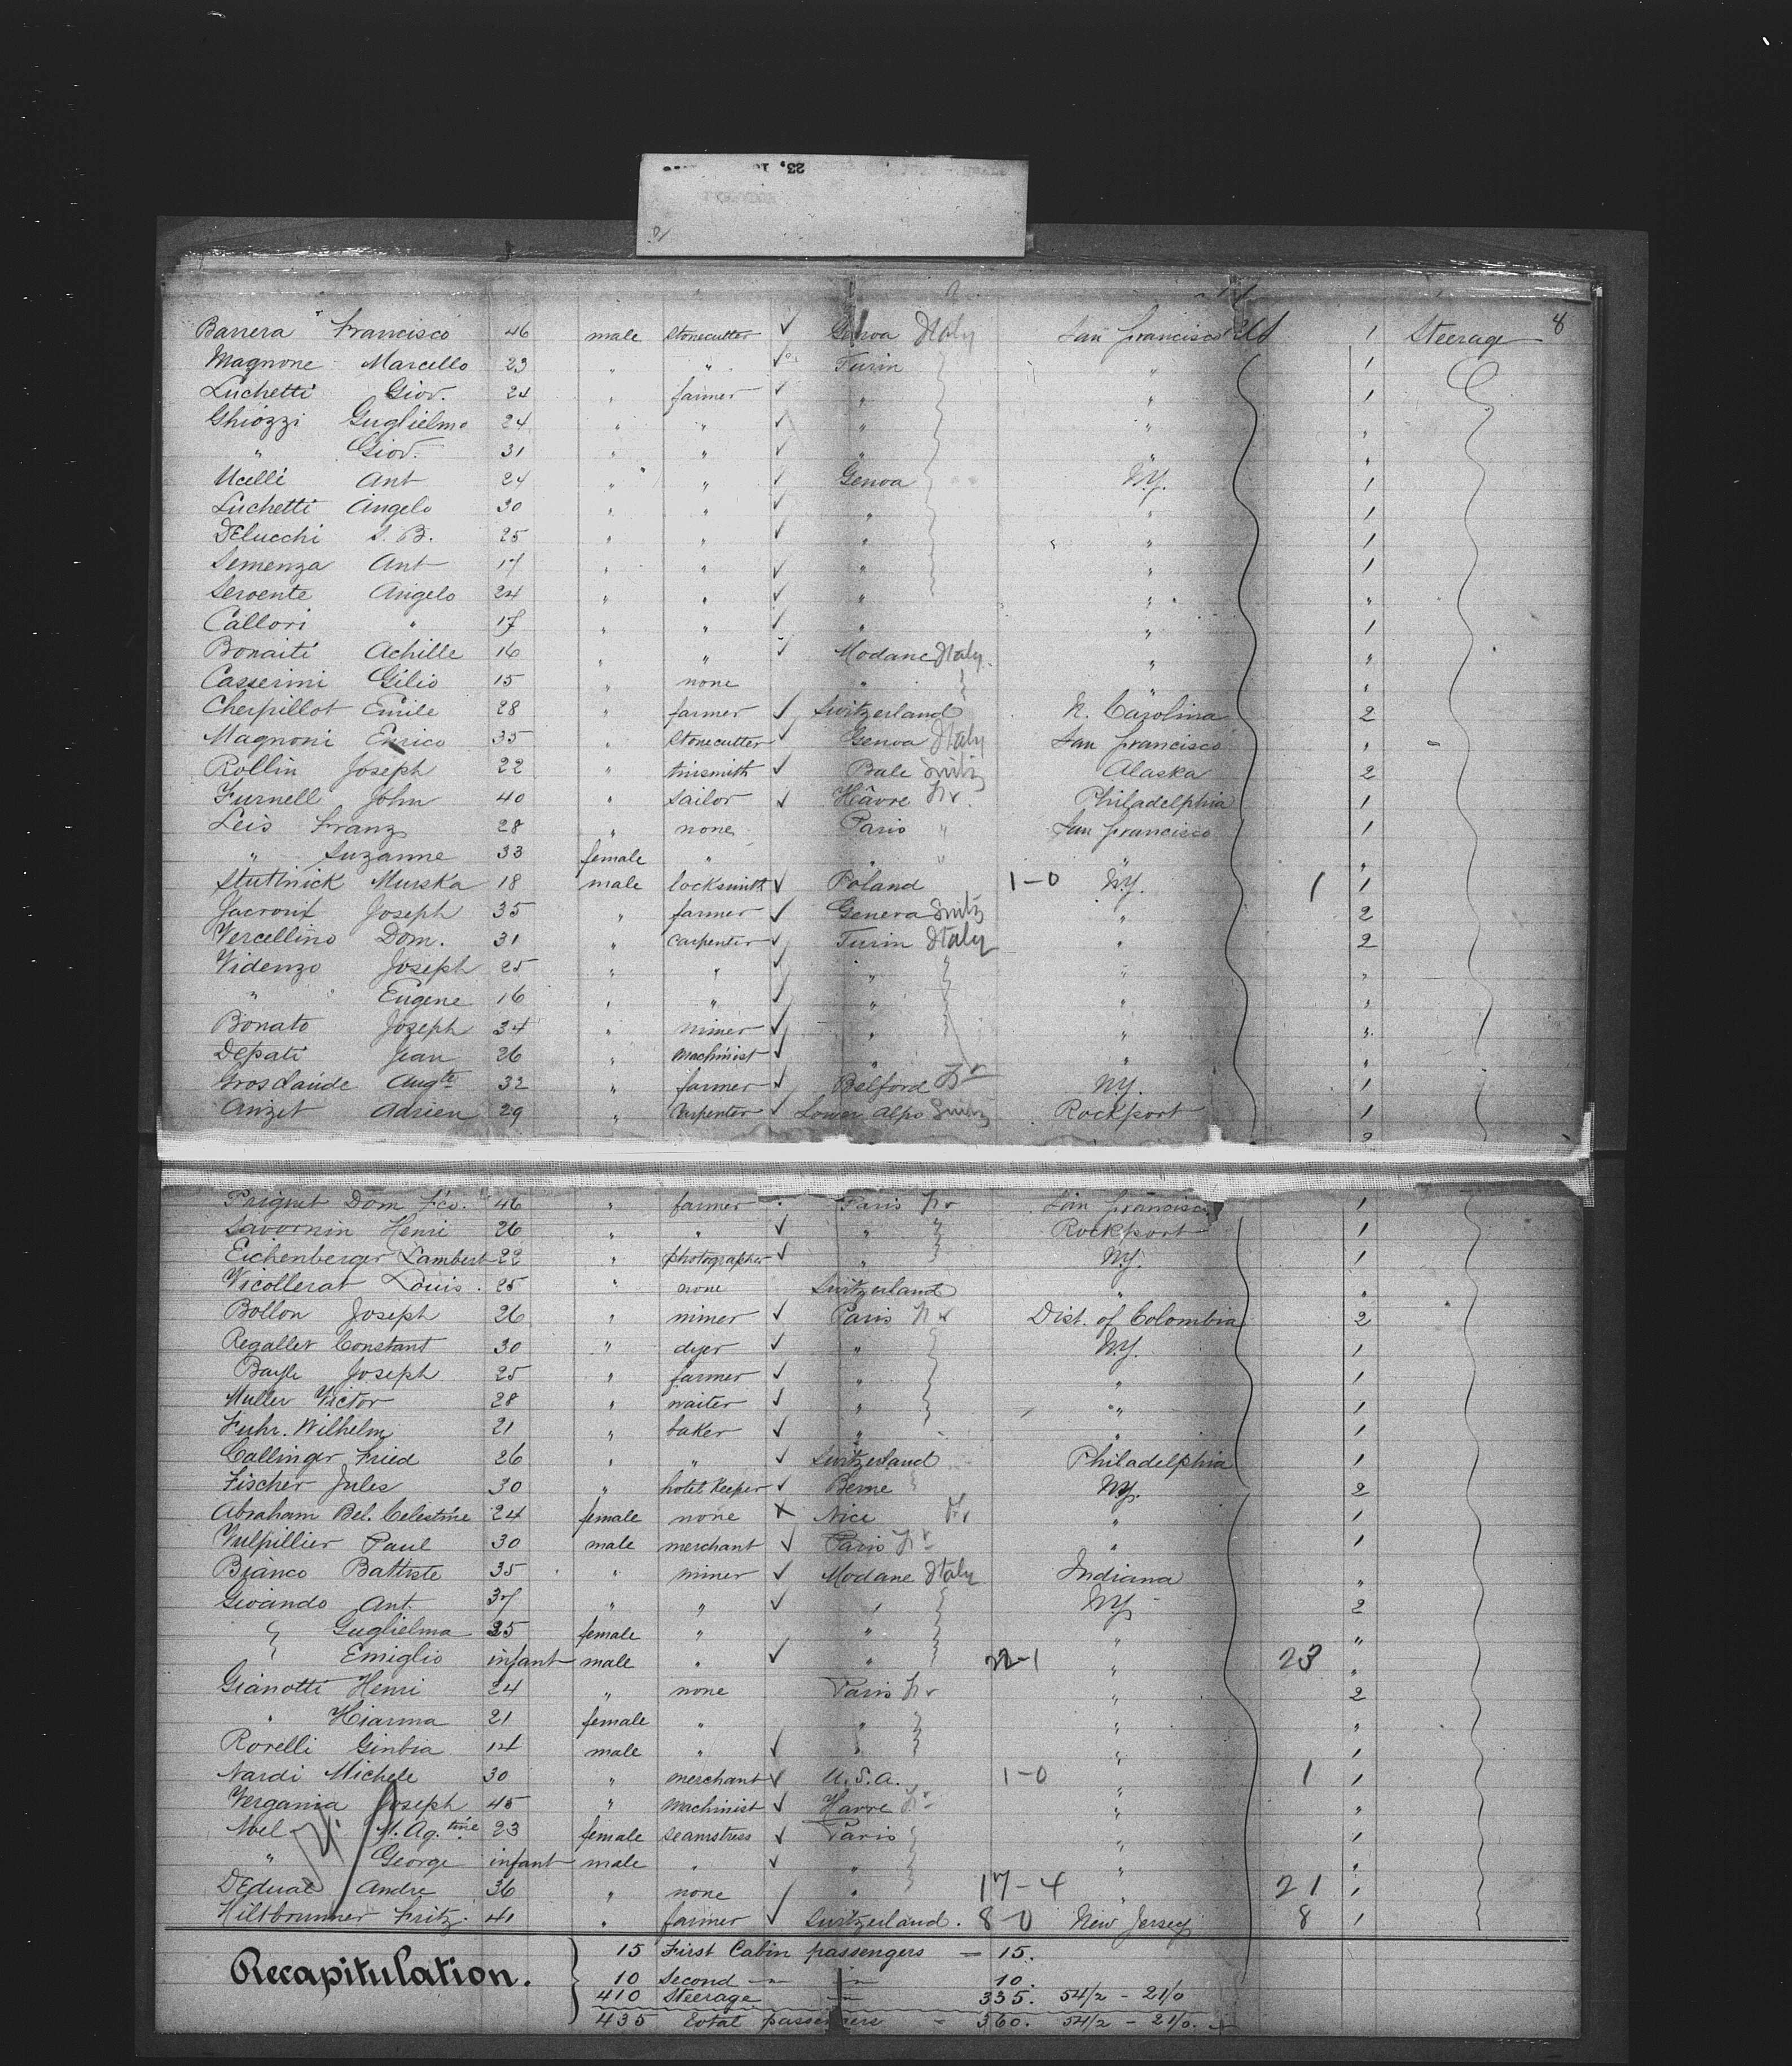 8
Barrera Francisco 46 male Stonecutter ✓ Genoa Italy San Francisco 1 Steerage
Magnone Marcello 23 " " ✓ Turin " 1
Luchetti Giov. 24 " farmer ✓ " " 1
Ghiozzi Guglielmo 24 " " ✓ " " "
" Giov. 31 " " ✓ " " "
Ucelli Ant 24 " " ✓ Genoa N.Y. 1
Luchetti Angelo 30 " " ✓ " " 1
DElucchi S. B. 25 " " ✓ " " 1
Semenza Ant 17 " " ✓ " " 1
Servente Angelo 24 " " ✓ " " "
Callori " 17 " " ✓ " " 1
Bonaiti Achille 16 " " ✓ Modane Italy " "
Casserini Gilio 15 " none " " "
Cherpillot Emile 28 " farmer ✓ Switzerland N. Carolina 2
Magnoni Enrico 35 " Stonecutter ✓ Genoa Italy San Francisco "
Rollin Joseph 22 " tinsmith ✓ Bale Switz Alaska 2
Furnell John 40 " sailor ✓ Hâvre Fr. Philadelphia 1
Leis Franz 28 " none Paris " San Francisco 1
" Suzanne 33 female " " " " "
Stutlnick Murska 18 male locksmith ✓ Poland 1-0 N.Y. 1 1
Joseph 35 " farmer ✓ Geneva Switz " 2
Vercellino Dom. 31 " carpenter ✓ Turin Italy " 2
Videnzo Joseph 25 " " ✓ " " "
" Eugene 16 " " ✓ " " "
Bonato Joseph 34 " miner ✓ " " "
DEpati Jean 26 " machinist ✓ " " "
Grosclaude Augte 32 " farmer ✓ Belford Fr N.Y. 1
Anzet Adrien 29 " carpenter ✓ Lower Alps Switz Rockport 1
2
Dom Fco. 46 " farmer Paris Fr San Francisco 1
Savornin Henri 26 " " ✓ " Rockport 1
Eichenberger Lambert 22 " photographer ✓ " N.Y. 1
Vicollerat Louis. 25 " none Switzerland " "
Bollon Joseph 26 " miner ✓ Paris Fr Dist. of Colombia 2
Regallet Constant 30 " dyer ✓ " N.Y. 1
Bayle Joseph 25 " farmer ✓ " " 1
Muller Victor 28 " waiter ✓ " " 1
Fuhr. Wilhelm 21 " baker ✓ " " 1
Callinger Fried 26 " " ✓ Switzerland Philadelphia 1
Fischer Jules 30 " hotel Keeper ✓ Berne N.Y. 2
Abraham Bel. Celestine 24 female none X Nice Fr " 1
Vulpillier Paul 30 male merchant ✓ Paris Fr " 1
Bianco Battiste 35 " miner ✓ Modane Italy Indiana "
Givando Ant. 37 " " ✓ " N.Y. 2
Guglielma 25 female " " " "
Emiglio infant male " ✓ " 22-1 " 23 "
Gianotti Henri 24 " none Paris Fr " 2
" Hiarma 21 female " " " "
Rovelli Ginbia 14 male " ✓ " " 1
Nardi Michele 30 " merchant ✓ U.S.A. 1-0 " 1 1
Vergania Joseph 45 " machinist ✓ Havre Fr " "
Noel M. Ag.tine 23 female seamstress ✓ Paris " 1
" George infant male " ✓ " " "
DEdual Andre 36 " none " 17-4 " 21 1
Hiltbrunner Fritz. 41 " farmer ✓ Switzerland. 8-0 New Jersey 8 1
Recapitulation.
15 First Cabin passengers = 15.
10 Second " " 10.
410 Steerage " 335. 54/2 - 21/0
435 Total passengers = 360. 54/2 - 21/0.